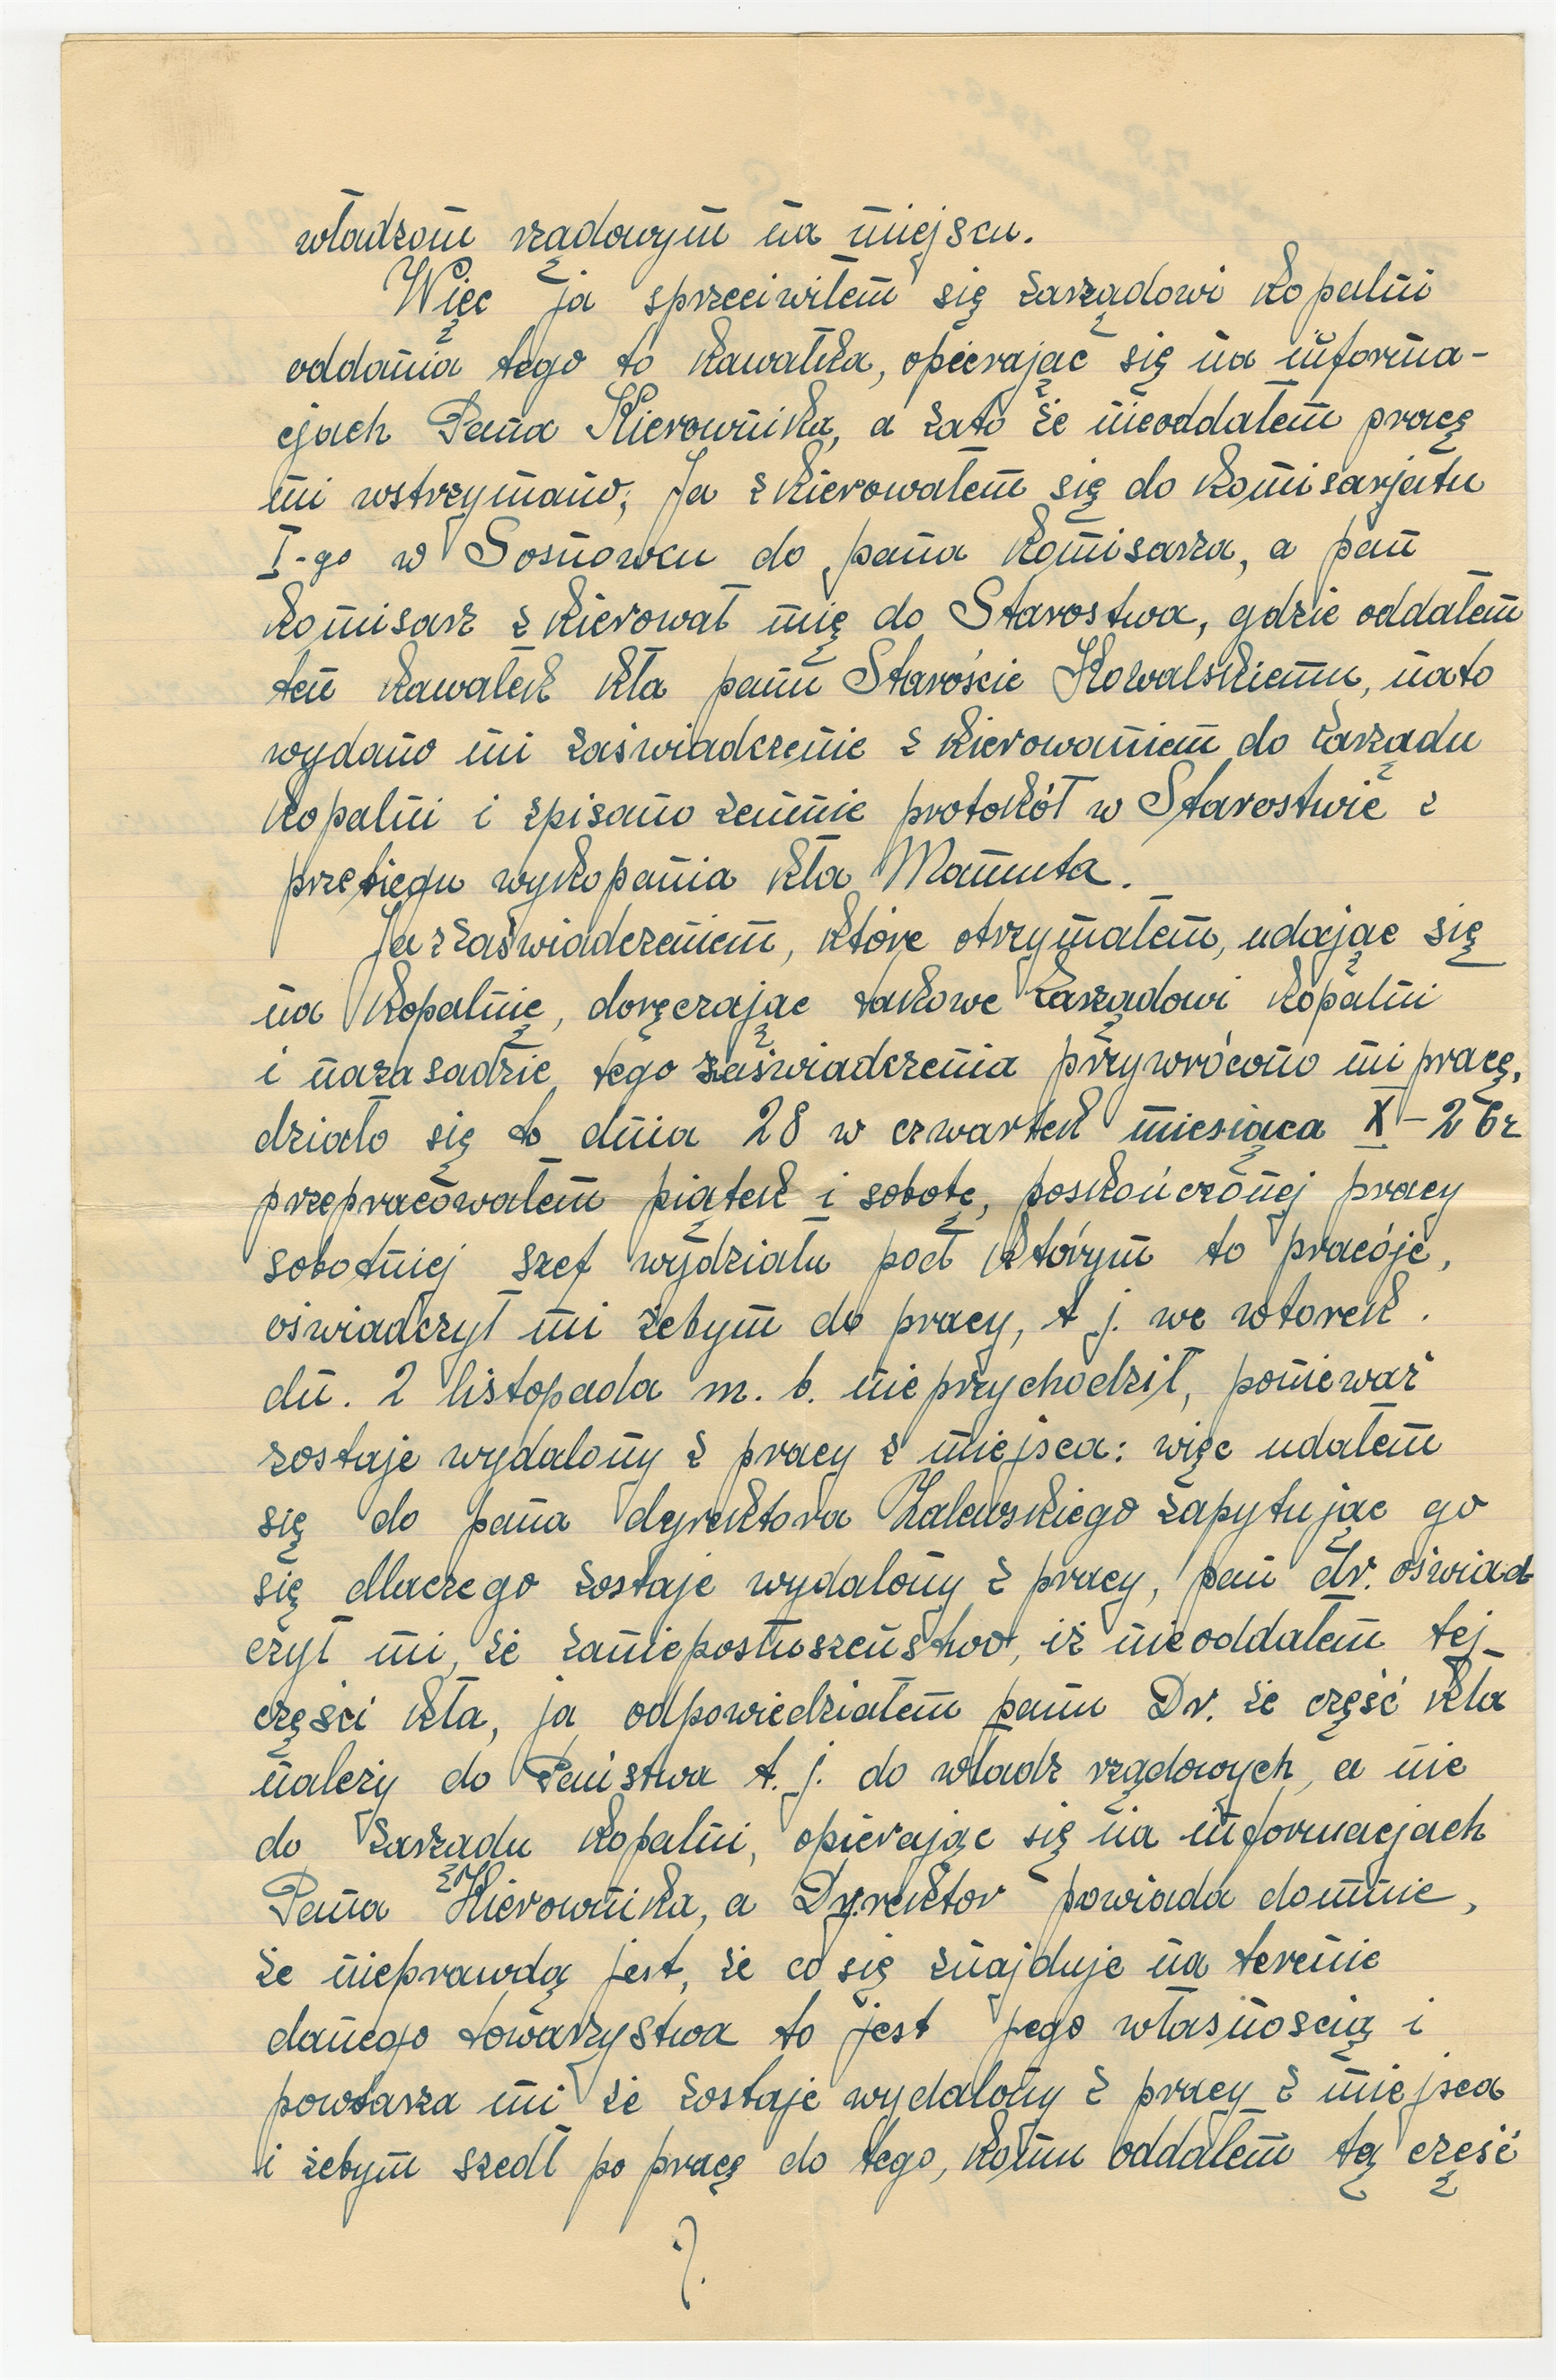 władzom rządowym na miejscu.
Więc ja sprzeciwiłem się zarządowi kopalni
oddania tego to kawałka, opierając się na informa-
cjach Pana Kierownika, a zato że nieoddałem pracę
mi wstrzymano; Ja zkierowałem się do komisarjatu
I-go w Sosnowcu do pana komisarza, a pan
komisarz zkierował mię do Starostwa, gdzie oddałem
ten kawałek kła panu Staroście Kowalskiemu, nato
wydano mi zaświadczenie zkierowaniem do zarządu
kopalni i zpisano zemnie protokół w Starostwie z
przebiegu wykopania kła Mamuta.
Ja z zaświadczeniem, które otrzymałem, udając się
na kopalnię, doręczając takowe zarządowi kopalni
i nazasadzie tego zaświadczenia przywrócono mi pracę,
działo się to dnia 28 w czwartek miesiąca X-26r
przepracowałem piątek i sobotę, poskończonej pracy
sobotniej szef wydziału pod którym to pracóje,
oświadczył mi żebym do pracy, t j. we wtorek.
dn. 2 listopada m. b. nieprzychodził, ponieważ
zostaje wydalony z pracy z miejsca: więc udałem
się do pana dyrektora Zalewskiego zapytując go
się dlaczego zostaje wydalony z pracy, pan dr. oświad
czył mi, że zanieposłuszeństwo, iż nieoddałem tej
części kła, ja odpowiedziałem panu Dr. że część kła
należy do Państwa t. j. do władz rządowych, a nie
do zarządu kopalni, opierając się na informacjach
Pana Kierownika, a Dyrektor powiada domnie,
że nieprawdą jest, że co się znajduje na terenie
danego towarzystwa to jest jego własnością i
powtarza mi że zostaje wydalony z pracy z miejsca
i żebym szedł po pracę do tego, komu oddałem tą część